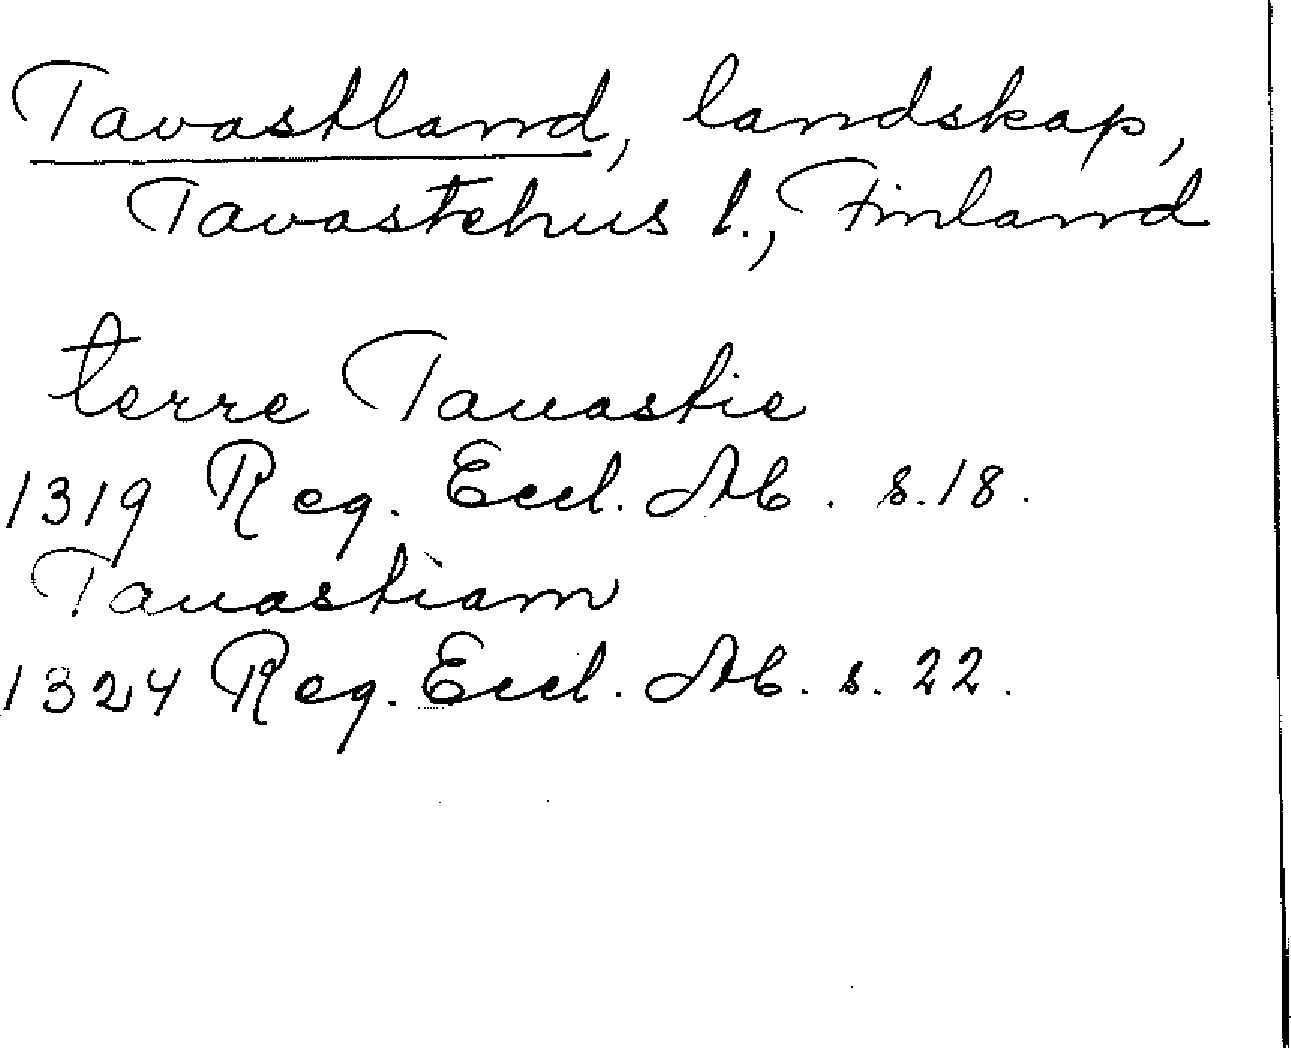 Tavastland, landskap,
Tavastehus l., Finland
terre Tauastie
1319 Reg. Eccl. Ab. s. 18.
Tauastiam
1324 Reg. Eccl. Ab. s. 22.